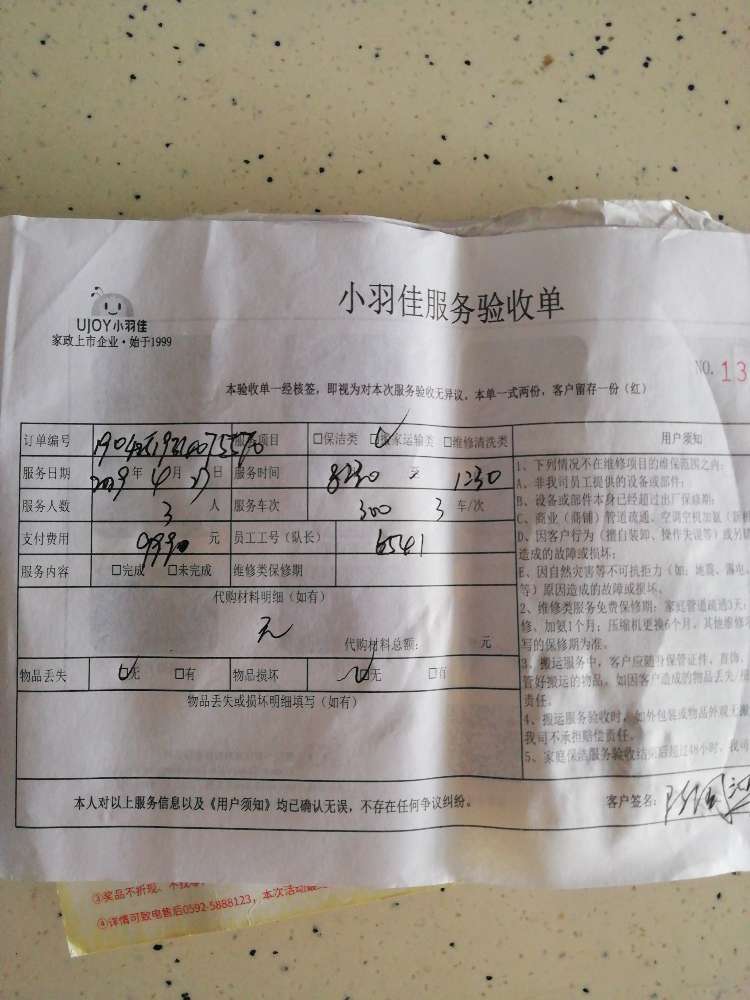 UJOY小羽佳
家政上市企业·始于1999
小羽佳服务验收单
NO. 13
本验收单一经核签，即视为对本次服务验收无异议。本单一式两份，客户留存一份（红）
订单编号 服务项目 □保洁类 □搬家运输类 □维修清洗类
服务日期 2019年4月27日 服务时间 8230 至 1230
服务人数 3 人 服务车次 300 3 车/次
支付费用 元 员工工号（队长） 6541
服务内容 □完成 □未完成 维修类保修期
代购材料明细（如有）
无
代购材料总额： 元
物品丢失 □无 □有 物品损坏 □无 □有
物品丢失或损坏明细填写（如有）
用户须知
1、下列情况不在维修项目的维保范围之内：
A、非我司员工提供的设备或部件；
B、设备或部件本身已经超过出厂保修期；
C、商业（商铺）管道疏通、空调空机加氨（新机
D、因客户行为（擅自装卸、操作失误等）或外
造成的故障或损坏；
E、因自然灾害等不可抗拒力（如：地震、漏电、
等）原因造成的故障或损坏。
2、维修类服务免费保修期：家庭管道疏通3天；
修、加氨1个月；压缩机更换6个月。其他维修
写的保修期为准。
3、搬运服务中，客户应随身保管证件、首饰、
管好搬运的物品，如因客户造成的物品丢失/
责任。
4、搬运服务验收时，如外包装或物品外观无
我司不承担赔偿责任。
5、家庭保洁服务验收结束后超过48小时，我司
本人对以上服务信息以及《用户须知》均已确认无误，不存在任何争议纠纷。
客户签名：
③奖品不折现、不找零
④详情可致电售后0592-5888123，本次活动最